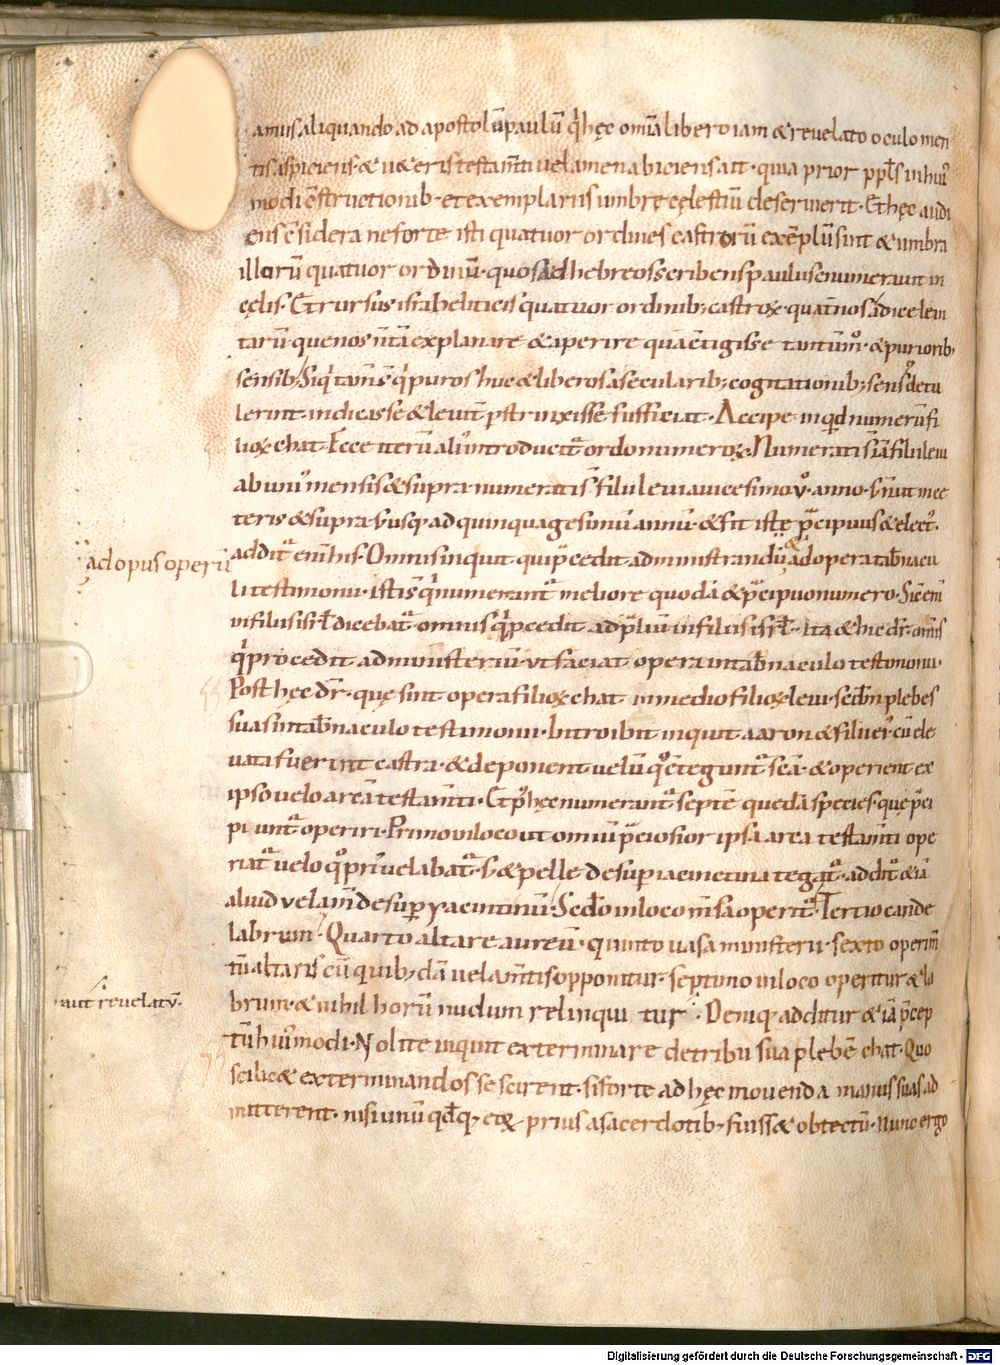 amus aliquando ad apostolū paulū q̇ hęc om̄a libero iam & revelato oculo men
tis aspiciens & u&eris testam̄ti velamen abiciens ait · quia prior ppl̄s in hui᾿
modi c̄structionib· et exemplariis umbrę cęlestiū deserverit · Et hęc audi
ens c̄sidera ne forte isti quatuor ordines castrorū exēplū sint & umbra
illorū quatuor ordinū · quos ad hebreos scribens paulus enumeravit in
cęlis · Et rursus israheliticis quatuor ordinib; castroꝝ · quat̄nos adice levi
tarū · que nos
sensib; Siq̇ tam̄ s̄ q̇ puros huc & liberos a secularib; cogitationib; sens᾿ detu
lerint · indicasse & leuit̄ p̄strinxisse sufficiat · Accipe inqd numerū fi
lioꝝ chat · Ecce iterū ali᾿ introducit᷑ ordo numeroꝝ · Numeratis iā filii levi
ab uni᾿ mensis & supra · numeratis filii levi a vicesimo v᾿ anno · s; n̄ vicē
teris & supra · s; usq; ad quinquagesimū annū · & fit iste p̄cipuus & elect᾿·
addit᷑ enī his · Omnis inquit qui p̄cedit administrandū & ad opera tab̄nacu
li testimonii · istis q̇ numerant᷑ meliore quodā & p̄cipuo numero · Sic enī
in filiis isrł dicebat᷑ · omnis q̇ p̄cedit ad p̄liū in filiis isrł · ita & hic dr̄ · omis
q̇ procedit ad ministeriū · ut faciat opera in tab̄naculo testimonii·
Post hęc dr̄ · quę sint opera filioꝝ chat in medio filioꝝ levi · sed̄m plebes
suas in tab̄naculo testimonii · Introibit inquit aaron & filii ei᾿ cū ele
vata fuerint castra · & deponent velū qd̄ c̄tegunt᷑ sc̄a · & operient ex
ipso velo arcā testam̄ti · Et p᾿ hęc numerant᷑ septē quedā species · quę p̄ci
piunt᷑ operiri · Primo in loco ut omiū p̄ciosior ipsa arca testam̄ti ope
riat᷑ velo qd̄ pri᾿ velabat᷑ · s; & pelle desup iacinctina tegat᷑ · addit᷑ & iā
aliud velam̄ desup yacintinū · Scdo in loco m̄sa operit᷑ · Tertio cande
labrum · Quarto altare aureū · quinto vasa ministerii · sexto operim̄
tū altaris cū quib;dā velam̄tis opponitur · septimo in loco operitur & la
brum · & nihil horū nudum relinquitur · Deniq; additur & iā p̄cep
tū hui᾿modi · Nolite inquit exterminare de tribu sua plebē chat · Quo
scilic& exterminandos se scirent · si forte ad hęc movenda manus suas ad
mitterent · nisi unū qd̄q; eoꝝ prius a sacerdotib; fuiss& obtectū · Nunc ergo
ad opus operū
aut revelatū·
Digitalisierung gefördert durch die Deutsche Forschungsgemeinschaft - DFG